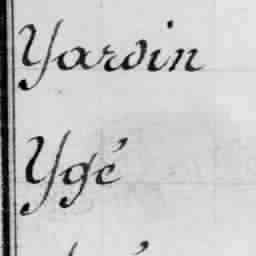 Yarvin
Ygé